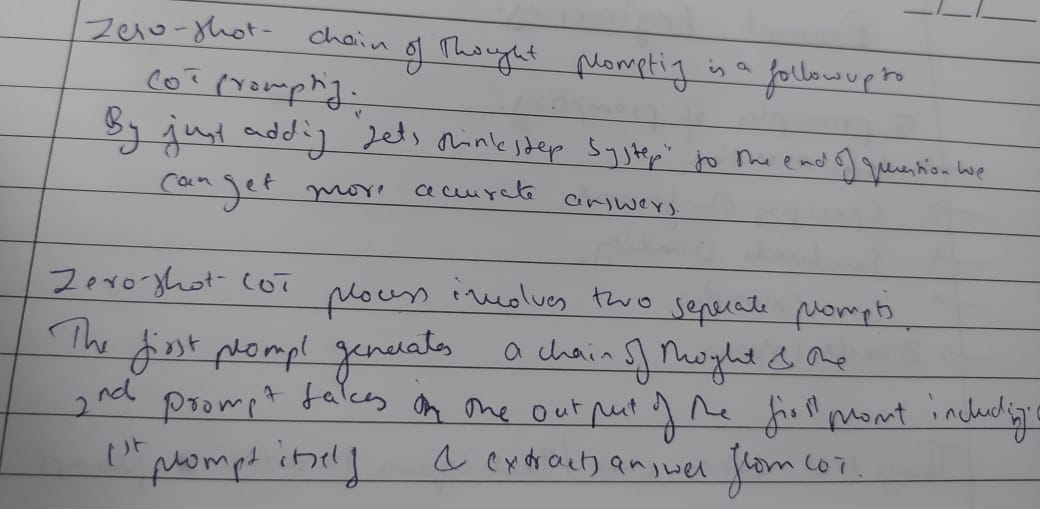 Zero-shot- chain of Thought prompting is a followup to
CoT Prompting.
By just adding "Lets think step by step" to the end of question we
can get more accurate answers.
Zero-shot-CoT process involves two seperate prompts.
The first prompt generates a chain of thoght & the
2nd prompt takes in the output of the first promt including
1st prompt itself & extracts answer from CoT.